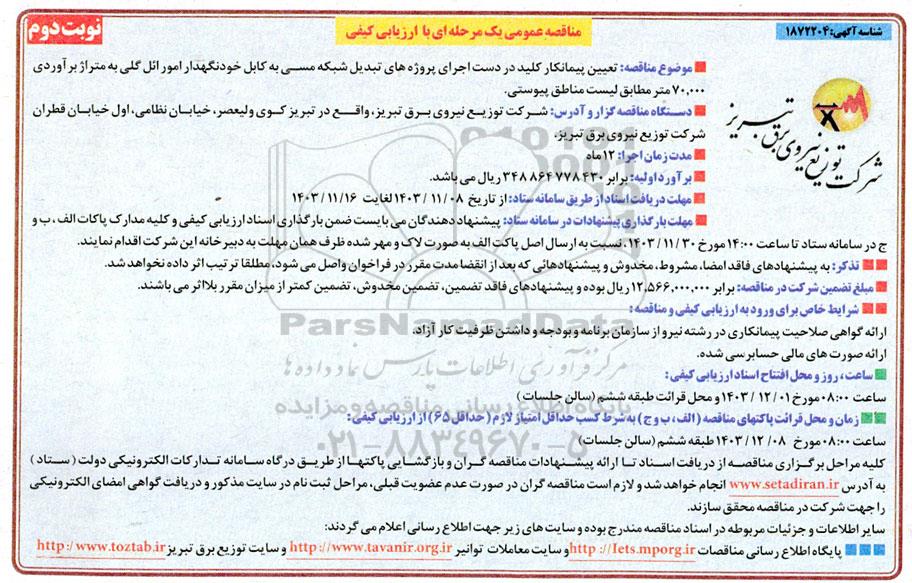 شناسه آگهی: ۱۸۷۲۲۰۴
مناقصه عمومی یک مرحله ای با ارزیابی کیفی
نوبت دوم
شرکت توزیع نیروی برق تبریز
موضوع مناقصه: تعیین پیمانکار کلید در دست اجرای پروژه های تبدیل شبکه مسی به کابل خودنگهدار امور ائل گلی به متراژ برآوردی
۷۰,۰۰۰ متر مطابق لیست مناطق پیوستی.
دستگاه مناقصه گزار و آدرس: شرکت توزیع نیروی برق تبریز، واقع در تبریز کوی ولیعصر، خیابان نظامی، اول خیابان قطران
شرکت توزیع نیروی برق تبریز.
مدت زمان اجرا: ۱۲ ماه
برآورد اولیه: برابر ۳۴۸ ۸۶۴ ۷۷۸ ۴۳۰ ریال می باشد.
مهلت دریافت اسناد از طریق سامانه ستاد: از تاریخ ۱۴۰۳/۱۱/۰۸ لغایت ۱۴۰۳/۱۱/۱۶
مهلت بارگذاری پیشنهادات در سامانه ستاد: پیشنهاد دهندگان می بایست ضمن بارگذاری اسناد ارزیابی کیفی و کلیه مدارک پاکات الف، ب و
ج در سامانه ستاد تا ساعت ۱۴:۰۰ مورخ ۱۴۰۳/۱۱/۳۰، نسبت به ارسال اصل پاکت الف به صورت لاک و مهر شده ظرف همان مهلت به دبیرخانه این شرکت اقدام نمایند.
تذکر: به پیشنهادهای فاقد امضا، مشروط، مخدوش و پیشنهادهائی که بعد از انقضا مدت مقرر در فراخوان واصل می شود، مطلقا ترتیب اثر داده نخواهد شد.
مبلغ تضمین شرکت در مناقصه: برابر ۱۲,۵۶۶,۰۰۰,۰۰۰ ریال بوده و پیشنهادهای فاقد تضمین، تضمین مخدوش، تضمین کمتر از میزان مقرر بلااثر می باشند.
شرایط خاص برای ورود به ارزیابی کیفی و مناقصه:
ارائه گواهی صلاحیت پیمانکاری در رشته نیرو از سازمان برنامه و بودجه و داشتن ظرفیت کار آزاد.
ارائه صورت های مالی حسابرسی شده.
ساعت، روز و محل افتتاح اسناد ارزیابی کیفی:
ساعت ۰۸:۰۰ مورخ ۱۴۰۳/۱۲/۰۱ و محل قرائت طبقه ششم (سالن جلسات)
زمان و محل قرائت پاکتهای مناقصه (الف، ب و ج) به شرط کسب حداقل امتیاز لازم (حداقل ۶۵) از ارزیابی کیفی:
ساعت ۰۸:۰۰ مورخ ۱۴۰۳/۱۲/۰۸ طبقه ششم (سالن جلسات)
کلیه مراحل برگزاری مناقصه از دریافت اسناد تا ارائه پیشنهادات مناقصه گران و بازگشایی پاکتها از طریق درگاه سامانه تدارکات الکترونیکی دولت (ستاد)
به آدرس www.setadiran.ir انجام خواهد شد و لازم است مناقصه گران در صورت عدم عضویت قبلی، مراحل ثبت نام در سایت مذکور و دریافت گواهی امضای الکترونیکی
را جهت شرکت در مناقصه محقق سازند.
سایر اطلاعات و جزئیات مربوطه در اسناد مناقصه مندرج بوده و سایت های زیر جهت اطلاع رسانی اعلام می گردند:
پایگاه اطلاع رسانی مناقصات http://Iets.mporg.ir و سایت معاملات توانیر http://www.tavanir.org.ir و سایت توزیع برق تبریز http:/www.toztab.ir
ParsNamadData
مرکز فرآوری اطلاعات پارس نماد داده ها
پایگاه اطلاع رسانی مناقصه و مزایده
۰۲۱-۸۸۳۴۹۶۷۰-۵